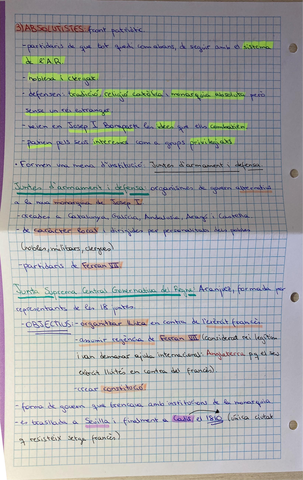 3) ABSOLUTISTES front patriòtic
- partidaris de que tot quedi com abans, de seguir amb el sistema
de l'A.R.
- noblesa i clergat
- defensen: tradició, religió catòlica i monarquia absoluta però
sense un rei estranger
- veien en Josep I Bonaparte les idees que ells combatien,
patien pels seus interessos com a grups privilegiats
• Formen una mena d'institució. Juntes d'armament i defensa
Juntes d'armament i defensa: organismes de govern alternatiu
a la nova monarquia de Josep I
- creades a Catalunya, Galícia, Andalusia, Aragó i Castella
- de caràcter local i dirigides per personalitats dels pobles
(nobles, militars, clergues)
- partidaris de Ferran VII
Junta Suprema Central Governativa del Regne Aranjuez, formada per
representants de les 18 juntes.
- OBJECTIUS: - organitzar lluita en contra de l'exèrcit francès
- assumir regència de Ferran VII (considerat rei legítim
i van demanar ajuda internacional: Anglaterra pq el seu
exèrcit lluités en contra del francès)
- crear constitució
- forma de govern que trencava amb institucions de la monarquia
- es trasllada a Sevilla i finalment a Cadis el 1810 (única ciutat
q resisteix setge francès)